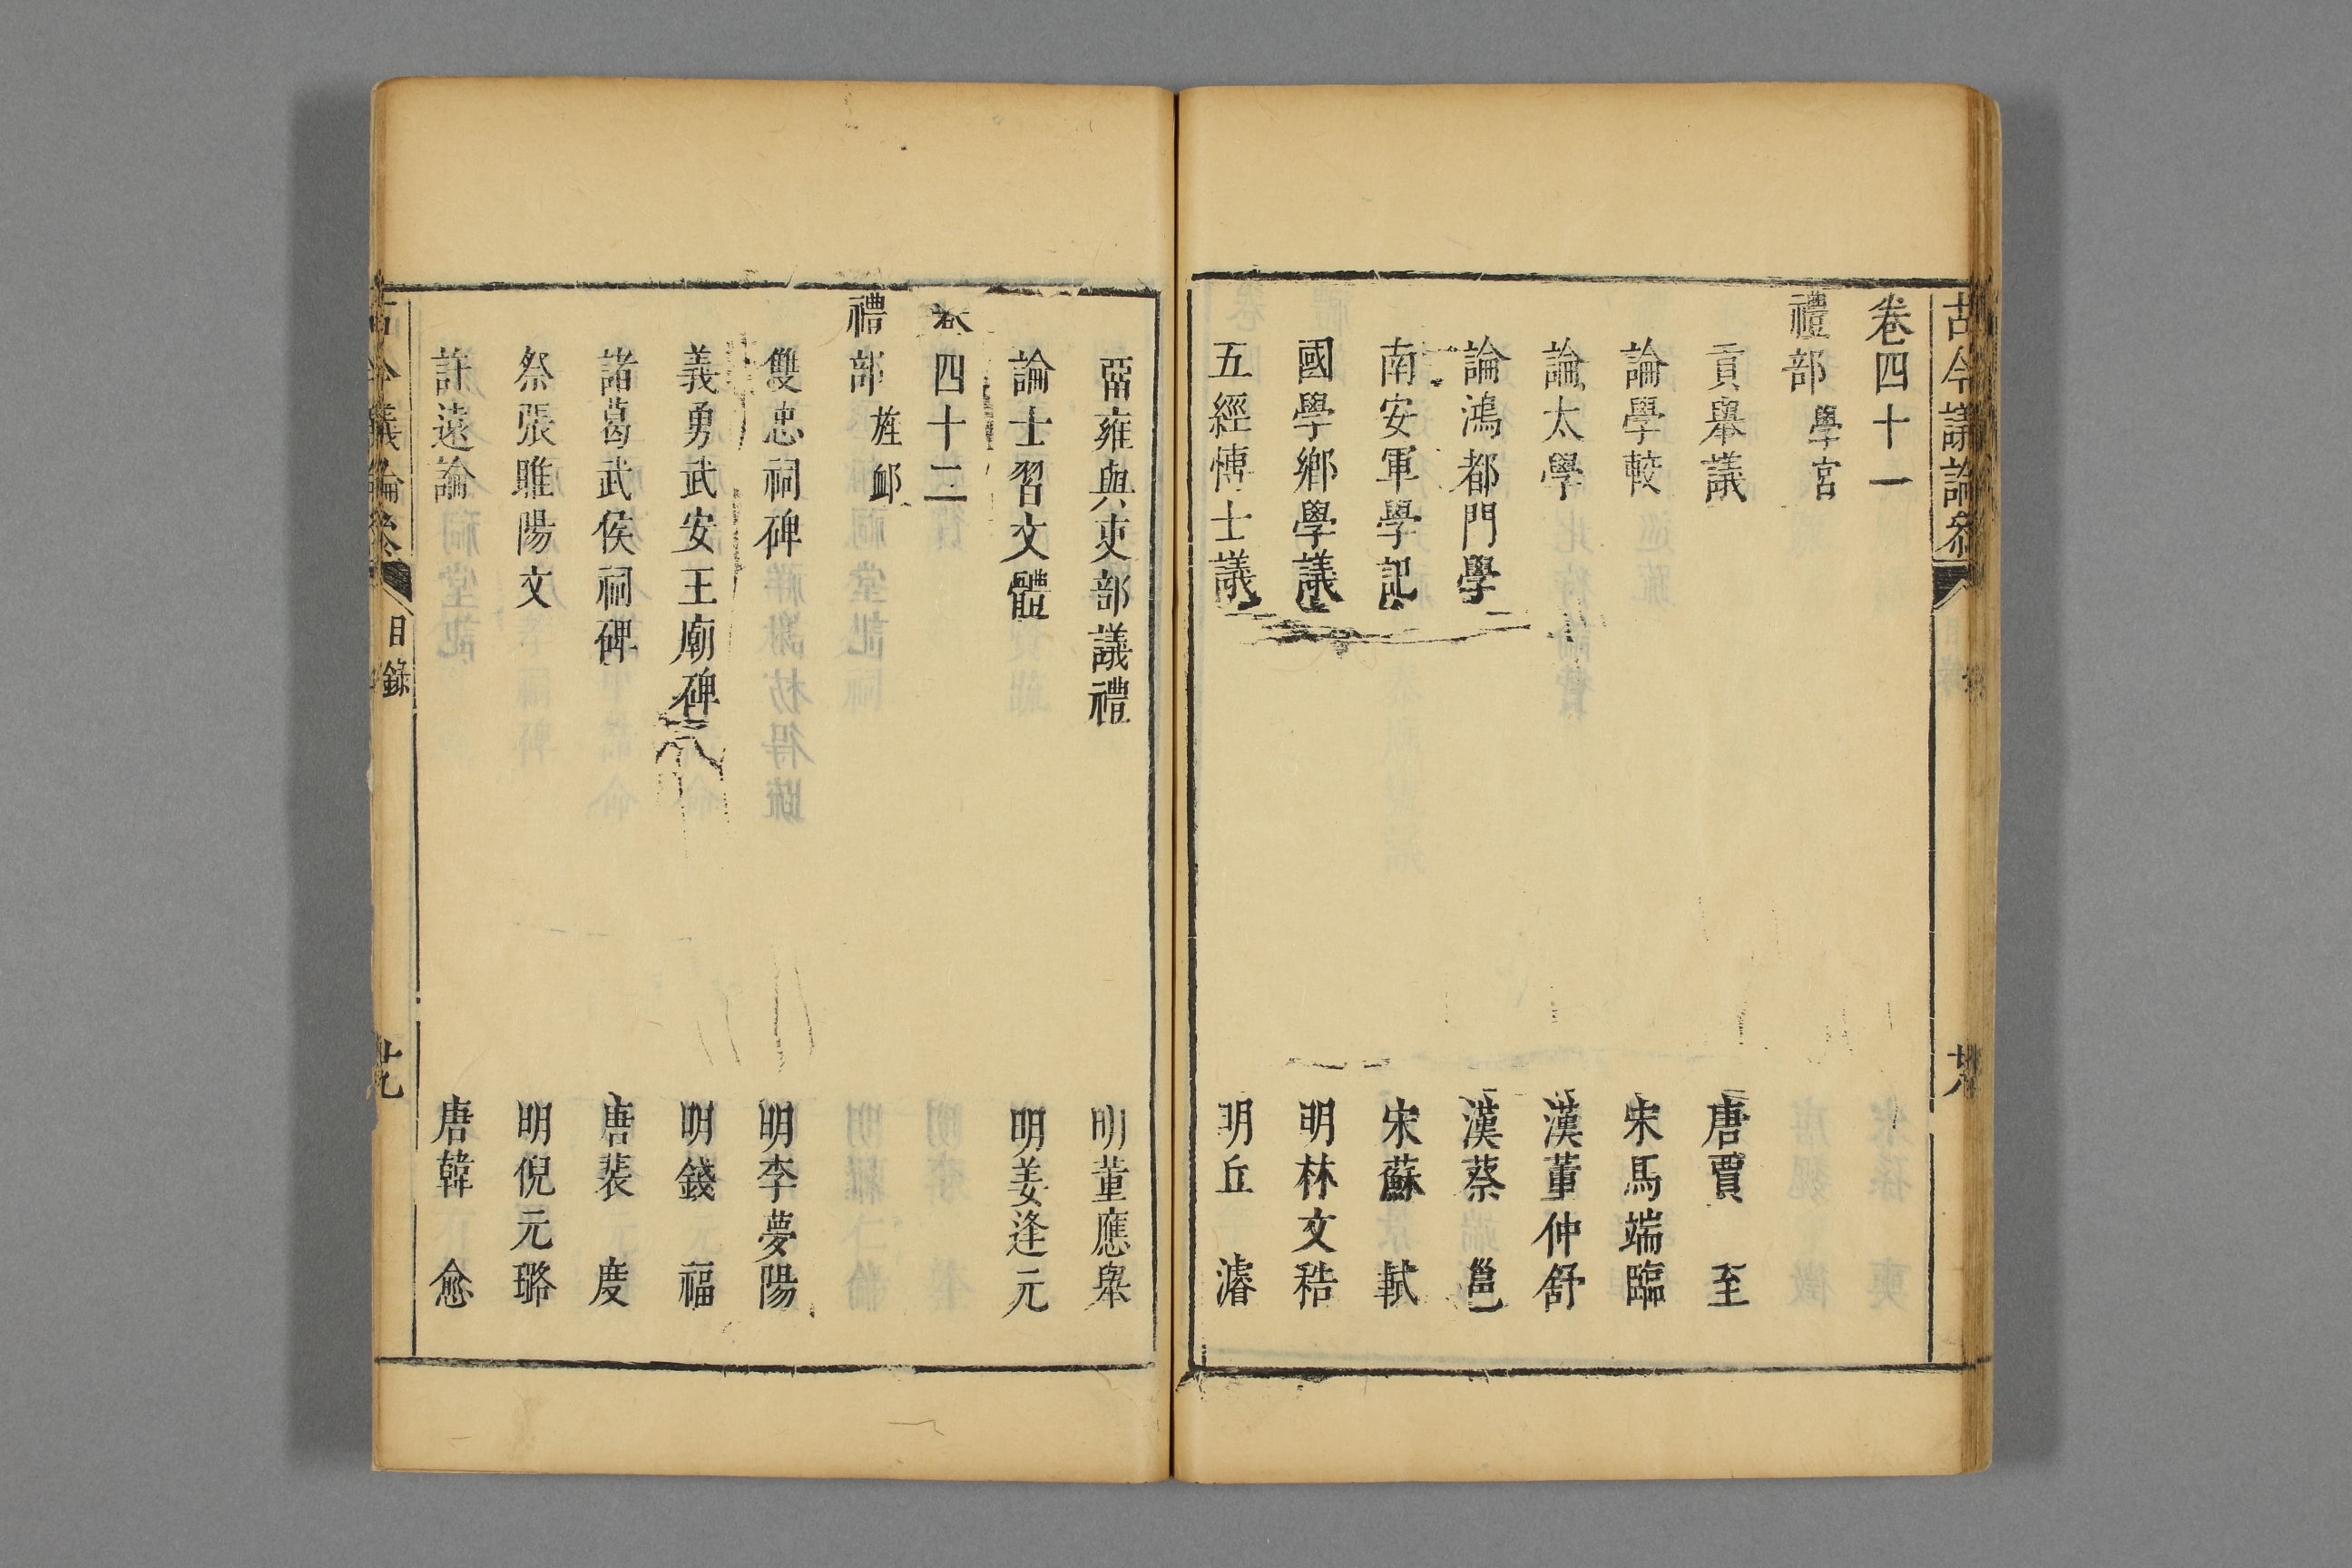 古今議論參
卷四十一
禮部 學宮
貢舉議 唐賈 至
論學較 宋馬端臨
論太學 漢董仲舒
論鴻都門學 漢蔡 邕
南安軍學記 宋蘇 軾
國學鄉學議 明林文秸
五經博士議 明丘 濬
雍與吏部議禮 明董應舉
論士習文體 明姜逢元
卷四十二
禮部 旌卹
雙忠祠碑 明李夢陽
義勇武安王廟碑 明錢 福
諸葛武侯祠碑 唐裴 度
祭張睢陽文 明倪元璐
許遠論 唐韓 愈
古今議論參 目錄